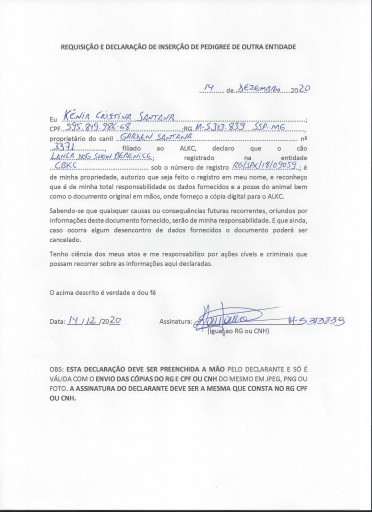 REQUISIÇÃO E DECLARAÇÃO DE INSERÇÃO DE PEDIGREE DE OUTRA ENTIDADE
14 de DEZEMBRO 2020
Eu KÊNIA CRISTINA SANTANA;
CPF 595.819.986-68 ;RG M-5.313.839 SSP-MG,
proprietário do canil GARDEN SANTANA nº
3371, filiado ao ALKC, declaro que o cão
LANCA DOG SHOW BERENICE; registrado na entidade
CBKC sob o número de registro RG/SPX/18/09059, é
de minha propriedade, autorizo que seja feito o registro em meu nome, e reconheço
que é de minha total responsabilidade os dados fornecidos e a posse do animal bem
como o documento original em mãos, onde forneço a cópia digital para o ALKC.
Sabendo-se que quaisquer causas ou consequências futuras recorrentes, oriundos por
informações deste documento fornecido, serão de minha responsabilidade. E que ainda,
caso ocorra algum desencontro de dados fornecidos o documento poderá ser
cancelado.
Tenho ciência dos meus atos e me responsabilizo por ações cíveis e criminais que
possam recorrer sobre as informações aqui declaradas.
O acima descrito é verdade e dou fé
Data: 14/12/2020 Assinatura: M-5313839
(Igual ao RG ou CNH)
OBS: ESTA DECLARAÇÃO DEVE SER PREENCHIDA A MÃO PELO DECLARANTE E SÓ É
VÁLIDA COM O ENVIO DAS CÓPIAS DO RG E CPF OU CNH DO MESMO EM JPEG, PNG OU
FOTO. A ASSINATURA DO DECLARANTE DEVE SER A MESMA QUE CONSTA NO RG CPF
OU CNH.